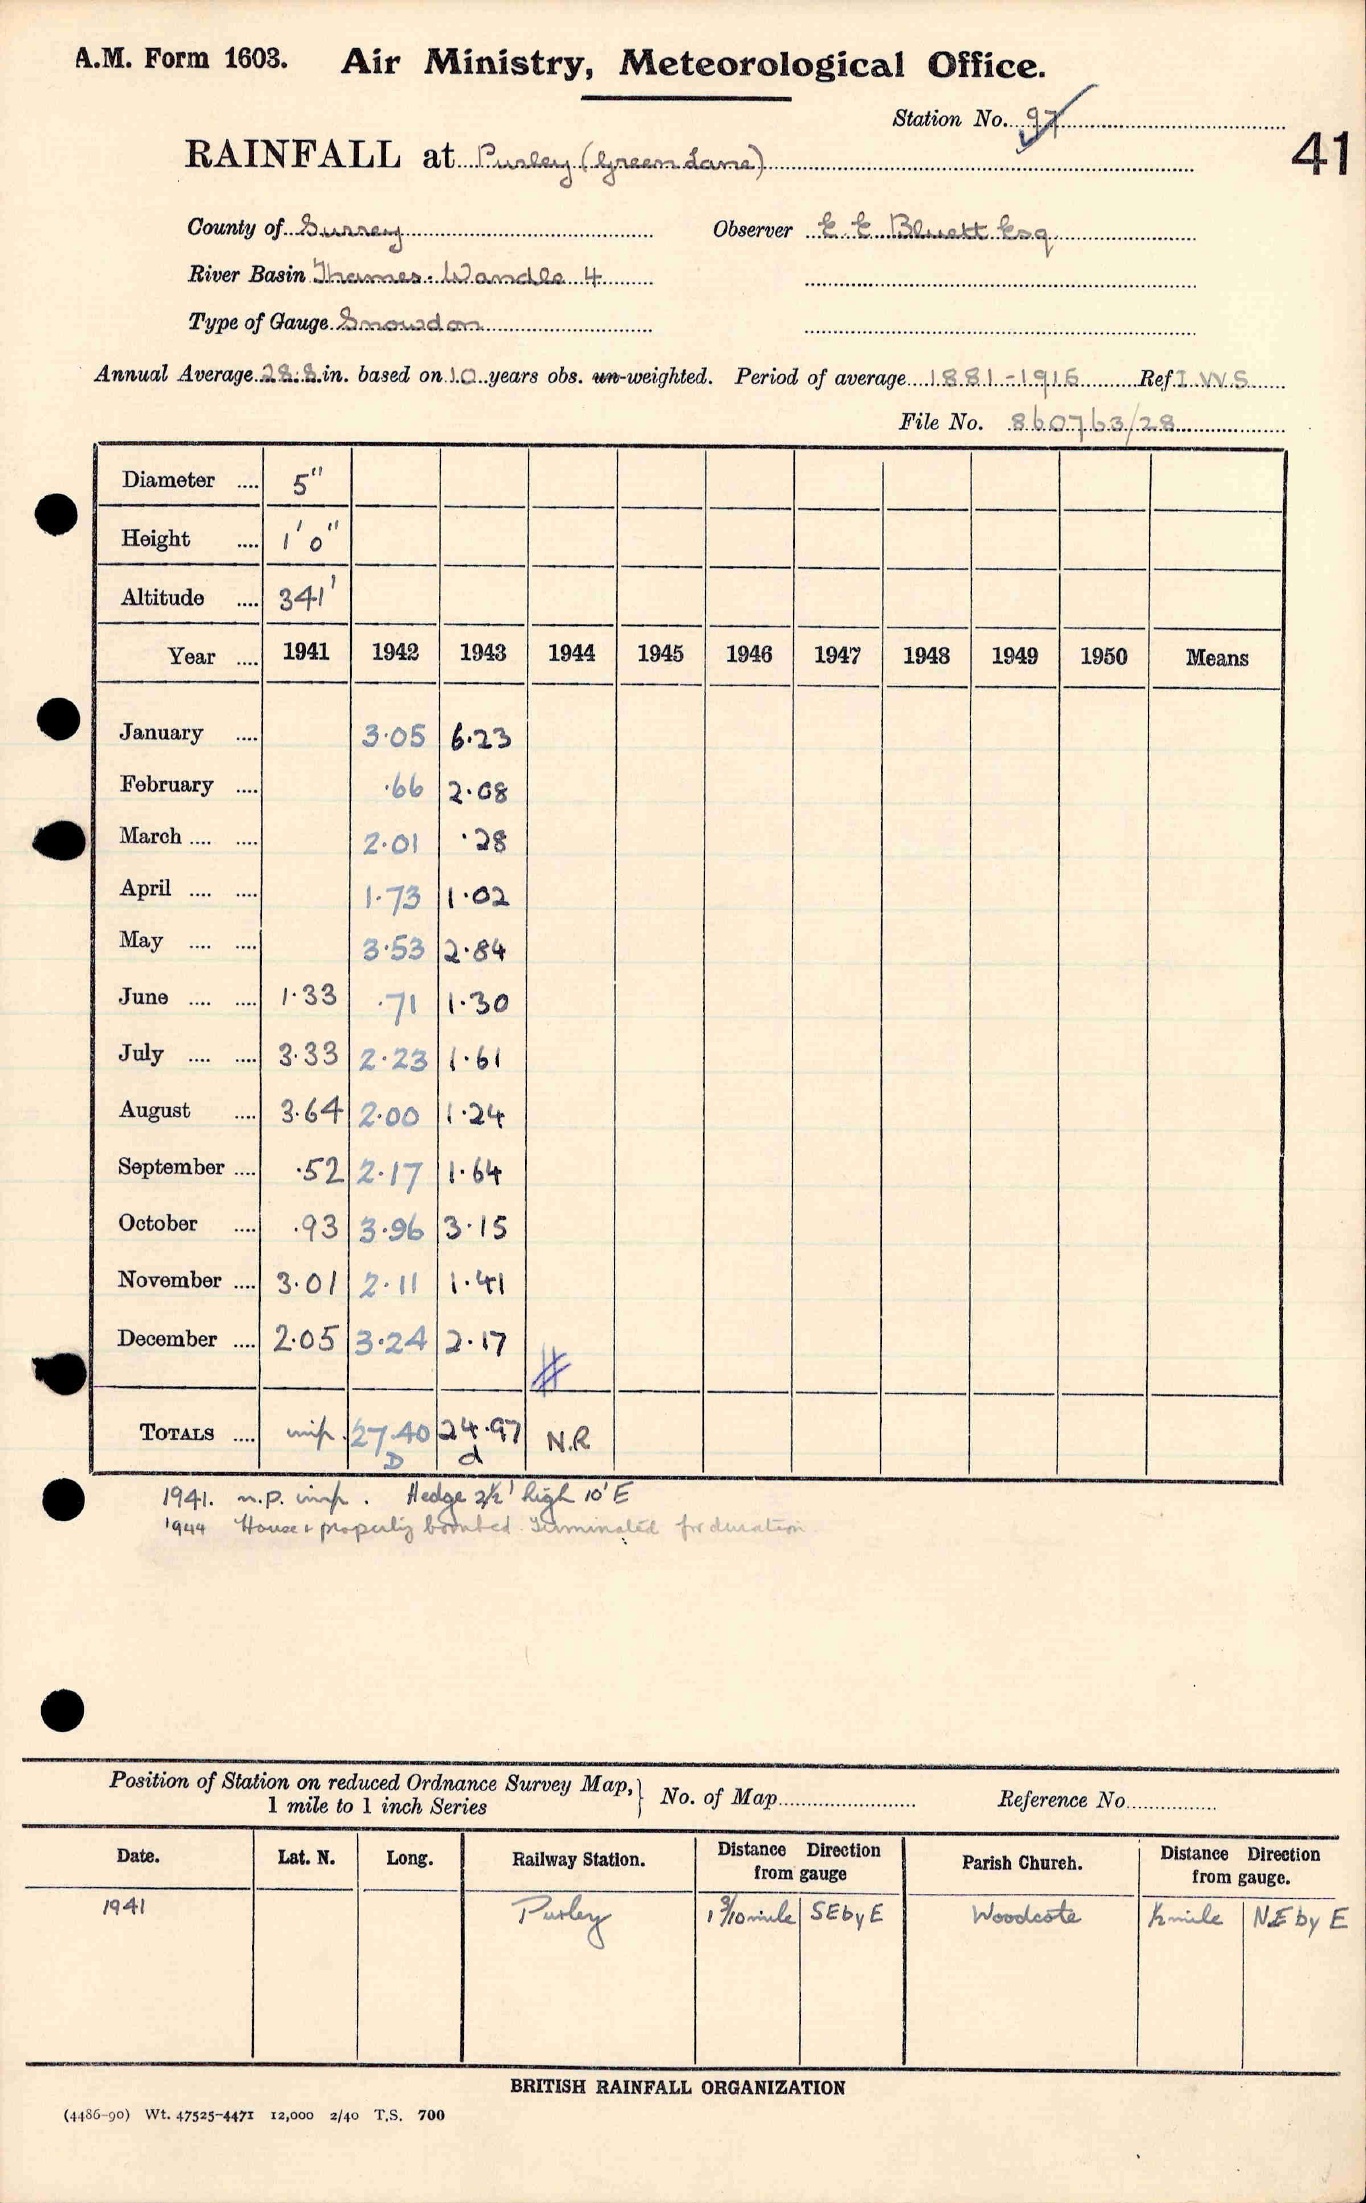 A.M. Form 1603. Air Ministry, Meteorological Office.
Station No. 97
41
RAINFALL at Purley (Green Lane)
County of Surrey Observer E E Bluett Esq
River Basin Thames. Wandle 4
Type of Gauge Snowdon
Annual Average 28.8 in. based on 10 years obs. un-weighted. Period of average 1881-1915 Ref I W S
File No. 860763/28
Diameter .... 5"
Height .... 1' 0"
Altitude .... 341'
Year .... 1941 1942 1943 1944 1945 1946 1947 1948 1949 1950 Means
January .... 3.05 6.23
February .... .66 2.08
March .... .... 2.01 .28
April .... .... 1.73 1.02
May .... .... 3.53 2.84
June .... .... 1.33 .71 1.30
July .... .... 3.33 2.23 1.61
August .... 3.64 2.00 1.24
September .... .52 2.17 1.64
October .... .93 3.96 3.15
November .... 3.01 2.11 1.41
December .... 2.05 3.24 2.17
TOTALS .... imp. 27.40 24.97 N.R
D d
1941. n.p. imp. Hedge 2½' high 10' E
1944 House & property bombed. Terminated for duration
Position of Station on reduced Ordnance Survey Map, } No. of Map Reference No.
1 mile to 1 inch Series
Date. Lat. N. Long. Railway Station. Distance Direction from gauge Parish Church. Distance Direction from gauge.
1941 Purley 1 9/10 mile SE by E Woodcote ½ mile NE by E
BRITISH RAINFALL ORGANIZATION
(4486-90) Wt. 47525-4471 12,000 2/40 T.S. 700